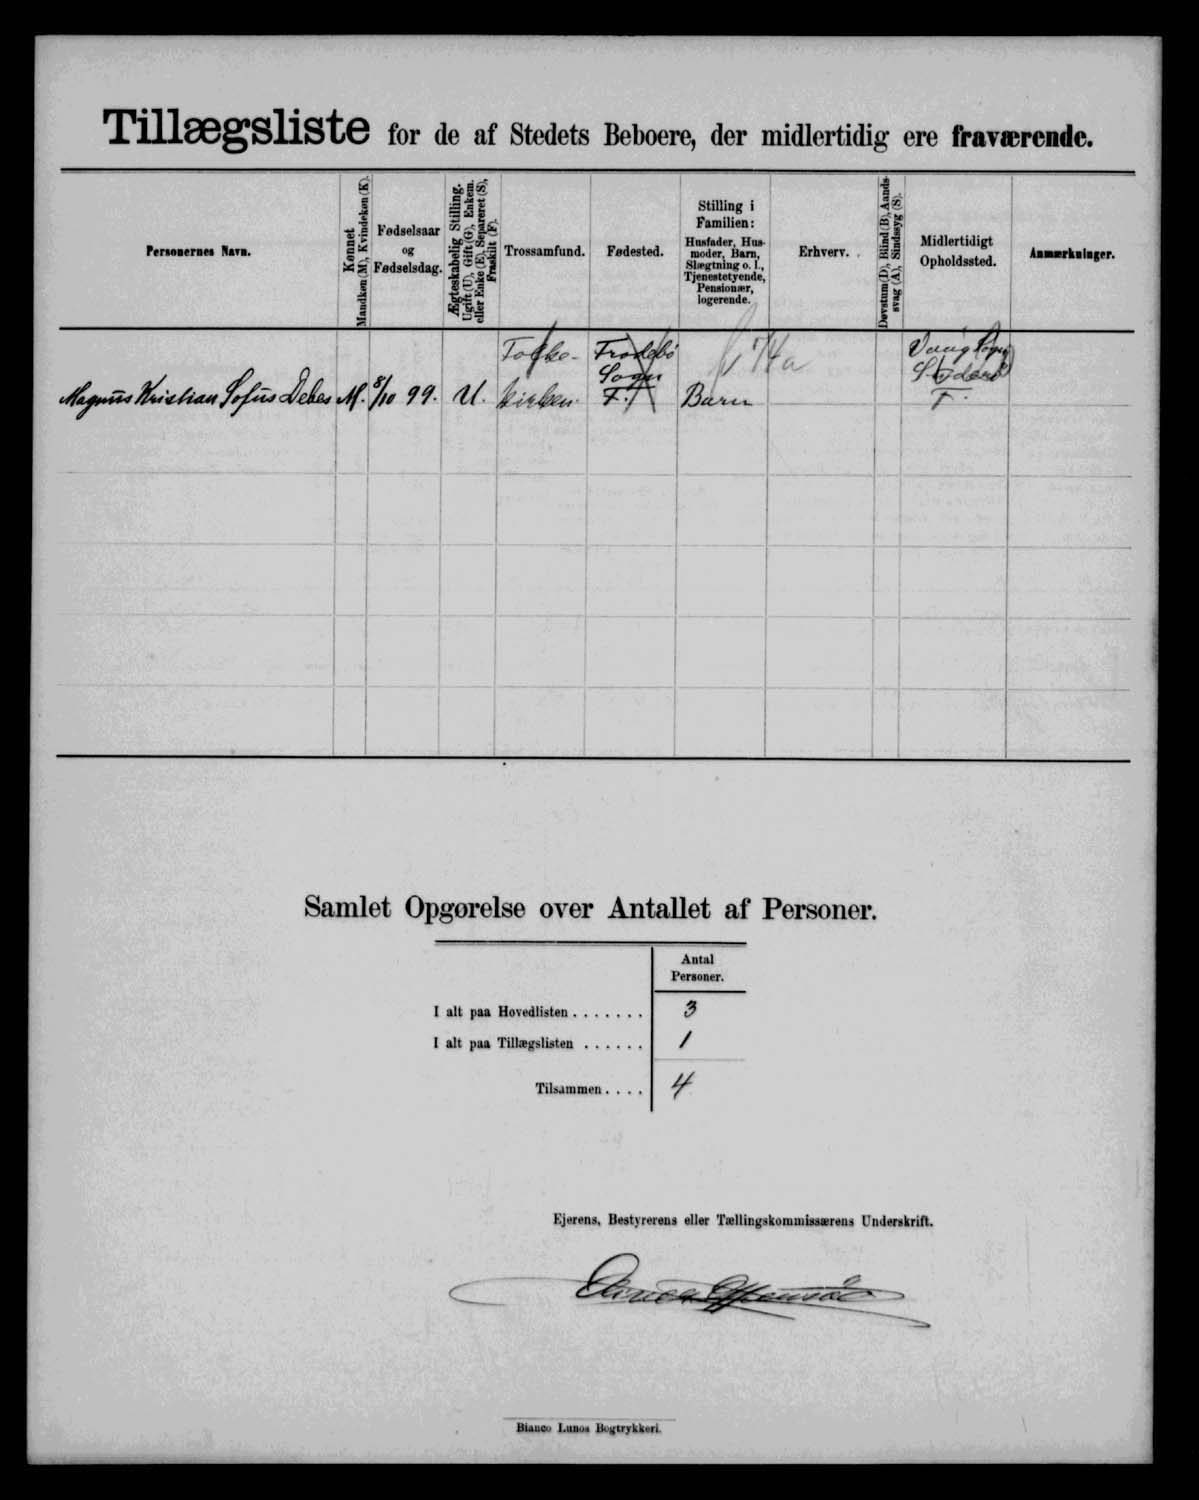 Tillægsliste for de af Stedets Beboere, der midlertidig ere fraværende.
Personernes Navn.
Kønnet
Mandkøn (M), Kvindekøn (K).
Fødselsaar
og
Fødselsdag.
Ægteskabelig Stilling.
Ugift (U), Gift (G), Enkem.
eller Enke (E), Separeret (S),
Fraskilt (F).
Trossamfund.
Fødested.
Stilling i
Familien:
Husfader, Hus-
moder, Barn,
Slægtning o. l.,
Tjenestetyende,
Pensionær,
logerende.
Erhverv.
Døvstum (D), Blind (B), Aands-
svag (A), Sindssyg (S).
Midlertidigt
Opholdssted.
Anmærkninger.
Magnus Kristian Sofus Debes
M.
8/10 99.
U.
Folke-
kirken.
Frodebø
Sogn
F.
Barn
Vaag Sogn
Suderø
F.
Samlet Opgørelse over Antallet af Personer.
Antal
Personer.
I alt paa Hovedlisten . . . . . . . 3
I alt paa Tillægslisten . . . . . . 1
Tilsammen . . . . 4
Ejerens, Bestyrerens eller Tællingskommissærens Underskrift.
Bianco Lunos Bogtrykkeri.